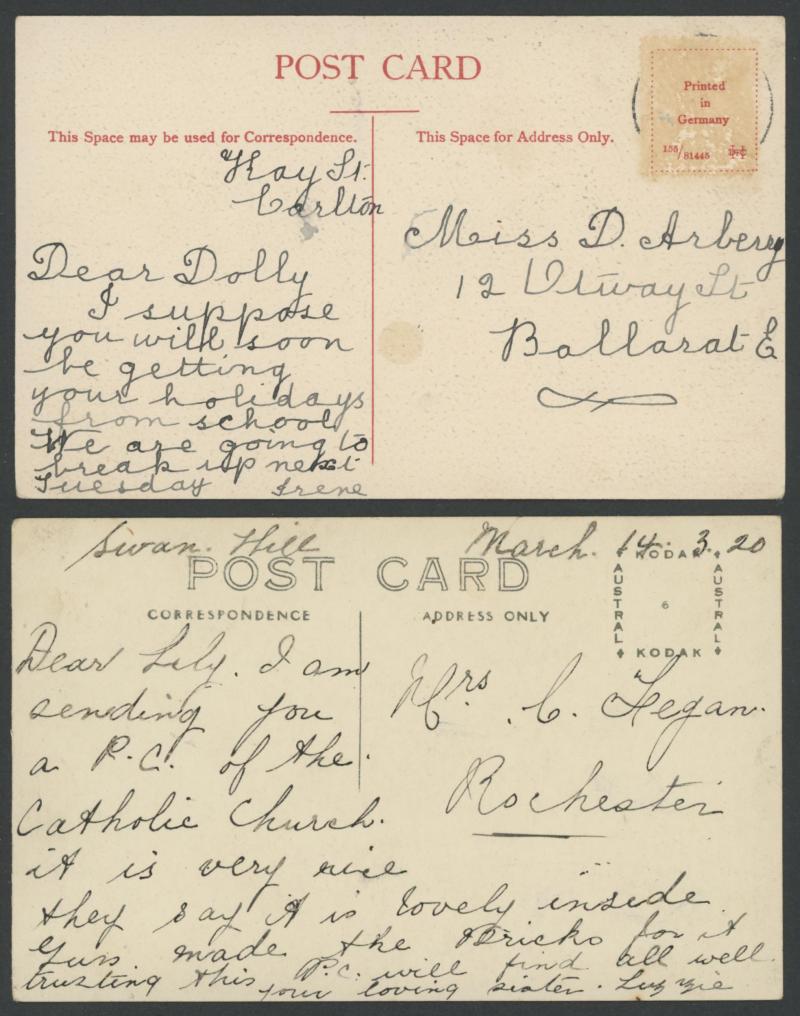 POST CARD
This Space may be used for Correspondence.
This Space for Address Only.
Printed
in
Germany
155/81445
Kay St.
Carlton
Dear Dolly
I suppose
you will soon
be getting
your holidays
from school
We are going to
break up next
Tuesday Irene
Miss D. Arberry
12 Otway St
Ballarat E
Swan. Hill
March. 14. 3. 20
POST CARD
CORRESPONDENCE
ADDRESS ONLY
KODAK
AUSTRAL
AUSTRAL
6
KODAK
Dear Lily. I am
sending you
a P.C. of the
Catholic Church.
it is very nice
they say it is lovely inside
Guss made the Bricks for it
trusting this P.C. will find all well.
your loving sister. Luzzie
Mrs. C. Fegan.
Rochester